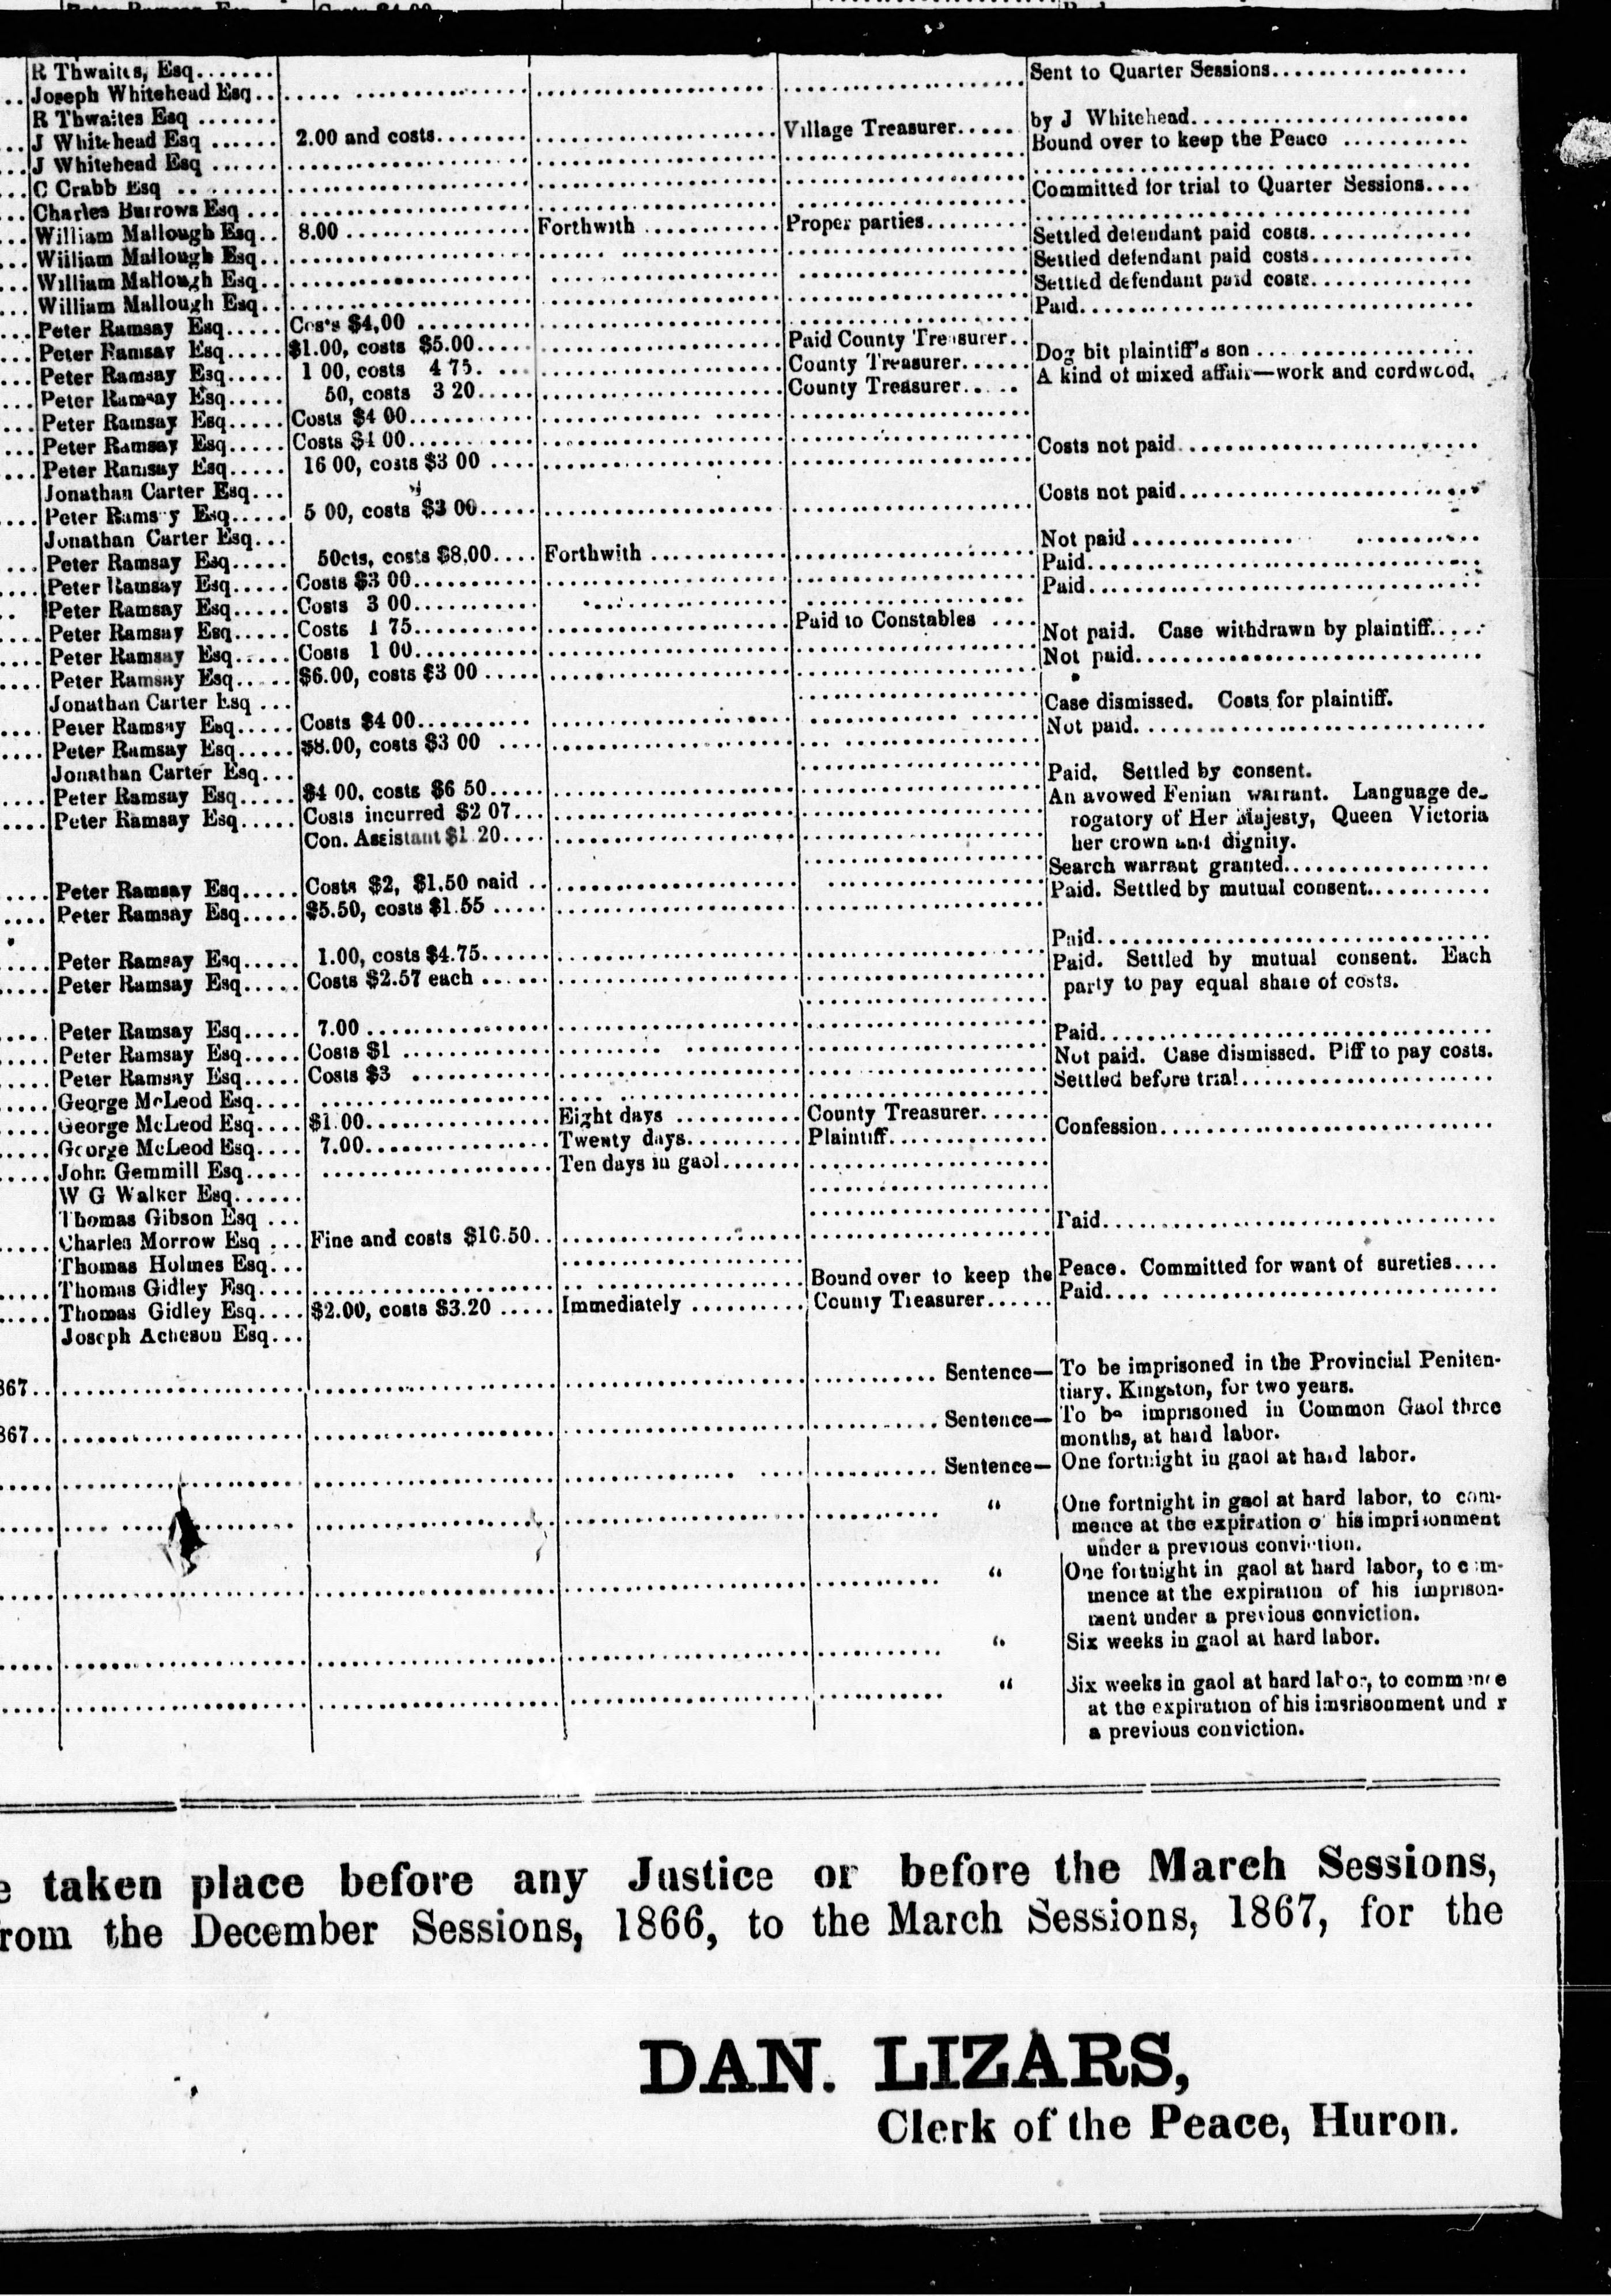 R Thwaites, Esq....... Sent to Quarter Sessions.................
Joseph Whitehead Esq..
R Thwaites Esq ....... by J Whitehead........................
J Whitehead Esq ...... 2.00 and costs........ Village Treasurer..... Bound over to keep the Peace ...........
J Whitehead Esq ......
C Crabb Esq .. ....... Committed for trial to Quarter Sessions....
Charles Burrows Esq ...
William Mallough Esq.. 8.00 ................ Forthwith ............ Proper parties......... Settled defendant paid costs..............
William Mallough Esq.. Settled defendant paid costs..............
William Mallough Esq.. Settled defendant paid costs..............
William Mallough Esq.. Paid..................................
Peter Ramsay Esq..... Costs $4,00 ..........
Peter Ramsay Esq..... $1.00, costs $5.00..... Paid County Treasurer.. Dog bit plaintiff's son ..................
Peter Ramsay Esq..... 1 00, costs 4 75. .... County Treasurer...... A kind of mixed affair—work and cordwood.
Peter Ramsay Esq..... 50, costs 3 20..... County Treasurer.. ...
Peter Ramsay Esq..... Costs $4 00..........
Peter Ramsay Esq..... Costs $4 00.......... Costs not paid........................
Peter Ramsay Esq..... 16 00, costs $3 00 ....
Jonathan Carter Esq... Costs not paid........................
Peter Rams y Esq..... 5 00, costs $3 00.....
Jonathan Carter Esq... Not paid .............. ...........
Peter Ramsay Esq..... 50cts, costs $8,00.... Forthwith ............ Paid..................................
Peter Ramsay Esq..... Costs $3 00.......... Paid..................................
Peter Ramsay Esq..... Costs 3 00...........
Peter Ramsay Esq..... Costs 1 75........... Paid to Constables .... Not paid. Case withdrawn by plaintiff.....
Peter Ramsay Esq..... Costs 1 00........... Not paid..............................
Peter Ramsay Esq..... $6.00, costs $3 00 .....
Jonathan Carter Esq ... Case dismissed. Costs for plaintiff.
Peter Ramsay Esq..... Costs $4 00.......... Not paid..............................
Peter Ramsay Esq..... $8.00, costs $3 00 ....
Jonathan Carter Esq... Paid. Settled by consent.
Peter Ramsay Esq..... $4 00, costs $6 50..... An avowed Fenian warrant. Language de-
Peter Ramsay Esq..... Costs incurred $2 07... rogatory of Her Majesty, Queen Victoria
Con. Assistant $1 20.... her crown and dignity.
Search warrant granted.................
Peter Ramsay Esq..... Costs $2, $1.50 paid .. Paid. Settled by mutual consent...........
Peter Ramsay Esq..... $5.50, costs $1.55 .....
Paid..................................
Peter Ramsay Esq..... 1.00, costs $4.75...... Paid. Settled by mutual consent. Each
Peter Ramsay Esq..... Costs $2.57 each ...... party to pay equal share of costs.
Peter Ramsay Esq..... 7.00 ................ Paid..................................
Peter Ramsay Esq..... Costs $1 ............ Not paid. Case dismissed. Plff to pay costs.
Peter Ramsay Esq..... Costs $3 ............ Settled before trial.....................
George McLeod Esq....
George McLeod Esq.... $1.00................ Eight days ........... County Treasurer...... Confession............................
George McLeod Esq.... 7.00................ Twenty days.......... Plaintiff..............
John Gemmill Esq..... Ten days in gaol.......
W G Walker Esq......
Thomas Gibson Esq ... Paid..................................
Charles Morrow Esq ... Fine and costs $10.50..
Thomas Holmes Esq...
Thomas Gidley Esq.... Bound over to keep the Peace. Committed for want of sureties....
Thomas Gidley Esq.... $2.00, costs $3.20 ..... Immediately .......... County Treasurer...... Paid.... .............................
Joseph Acheson Esq...
867.. Sentence— To be imprisoned in the Provincial Peniten-
tiary, Kingston, for two years.
867.. Sentence— To be imprisoned in Common Gaol three
months, at hard labor.
Sentence— One fortnight in gaol at hard labor.
“ One fortnight in gaol at hard labor, to com-
mence at the expiration o his imprisonment
under a previous conviction.
“ One fortnight in gaol at hard labor, to c m-
mence at the expiration of his imprison-
ment under a previous conviction.
“ Six weeks in gaol at hard labor.
“ Six weeks in gaol at hard labor, to commence
at the expiration of his imsrisonment und r
a previous conviction.
e taken place before any Justice or before the March Sessions,
rom the December Sessions, 1866, to the March Sessions, 1867, for the
DAN. LIZARS,
Clerk of the Peace, Huron.